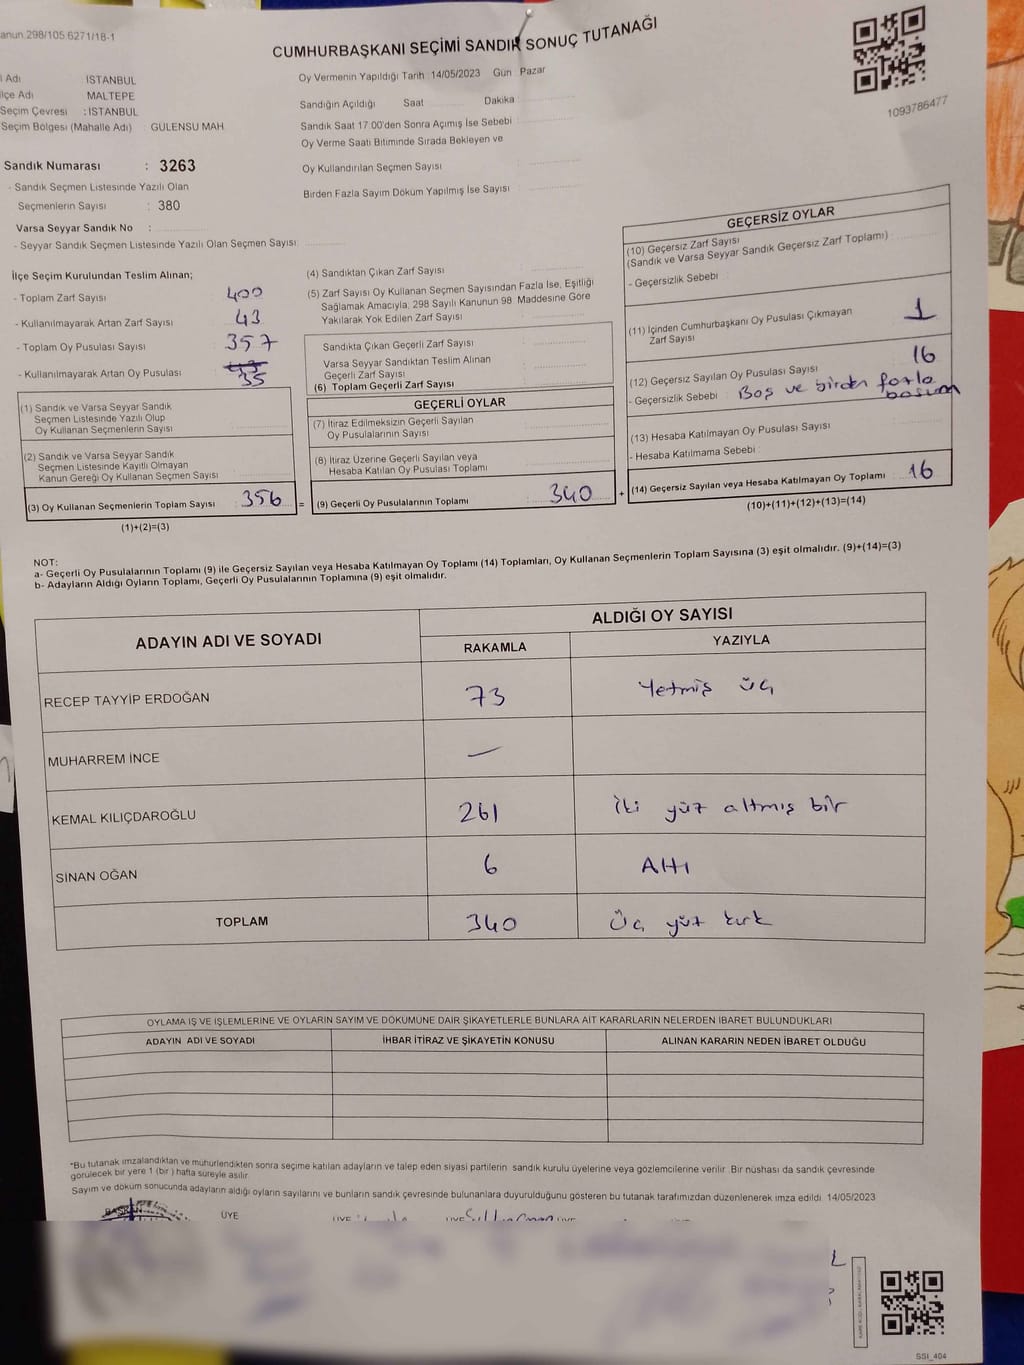 anun.298/105.6271/18-1
CUMHURBAŞKANI SEÇİMİ SANDIK SONUÇ TUTANAĞI
1093786477
Adı İSTANBUL
lçe Adı MALTEPE
Seçim Çevresi : İSTANBUL
Seçim Bölgesi (Mahalle Adı) GÜLENSU MAH
Sandık Numarası : 3263
- Sandık Seçmen Listesinde Yazılı Olan
Seçmenlerin Sayısı : 380
Varsa Seyyar Sandık No :
- Seyyar Sandık Seçmen Listesinde Yazılı Olan Seçmen Sayısı:
Oy Vermenin Yapıldığı Tarih 14/05/2023 Gün Pazar
Sandığın Açıldığı Saat Dakika
Sandık Saat 17:00'den Sonra Açılmış İse Sebebi
Oy Verme Saati Bitiminde Sırada Bekleyen ve
Oy Kullandırılan Seçmen Sayısı
Birden Fazla Sayım Döküm Yapılmış İse Sayısı
İlçe Seçim Kurulundan Teslim Alınan;
- Toplam Zarf Sayısı 400
- Kullanılmayarak Artan Zarf Sayısı 43
- Toplam Oy Pusulası Sayısı 357
- Kullanılmayarak Artan Oy Pusulası 35
(1) Sandık ve Varsa Seyyar Sandık
Seçmen Listesinde Yazılı Olup
Oy Kullanan Seçmenlerin Sayısı
(2) Sandık ve Varsa Seyyar Sandık
Seçmen Listesinde Kayıtlı Olmayan
Kanun Gereği Oy Kullanan Seçmen Sayısı
(3) Oy Kullanan Seçmenlerin Toplam Sayısı : 356 =
(1)+(2)=(3)
(4) Sandıktan Çıkan Zarf Sayısı
(5) Zarf Sayısı Oy Kullanan Seçmen Sayısından Fazla İse, Eşitliği
Sağlamak Amacıyla, 298 Sayılı Kanunun 98. Maddesine Göre
Yakılarak Yok Edilen Zarf Sayısı
Sandıkta Çıkan Geçerli Zarf Sayısı
Varsa Seyyar Sandıktan Teslim Alınan
Geçerli Zarf Sayısı
(6) Toplam Geçerli Zarf Sayısı
GEÇERLİ OYLAR
(7) İtiraz Edilmeksizin Geçerli Sayılan
Oy Pusulalarının Sayısı
(8) İtiraz Üzerine Geçerli Sayılan veya
Hesaba Katılan Oy Pusulası Toplamı
(9) Geçerli Oy Pusulalarının Toplamı : 340 +
GEÇERSİZ OYLAR
(10) Geçersiz Zarf Sayısı
(Sandık ve Varsa Seyyar Sandık Geçersiz Zarf Toplamı) :
- Geçersizlik Sebebi :
(11) İçinden Cumhurbaşkanı Oy Pusulası Çıkmayan
Zarf Sayısı 1
(12) Geçersiz Sayılan Oy Pusulası Sayısı 16
- Geçersizlik Sebebi : Boş ve birden fazla
basım
(13) Hesaba Katılmayan Oy Pusulası Sayısı
- Hesaba Katılmama Sebebi :
(14) Geçersiz Sayılan veya Hesaba Katılmayan Oy Toplamı : 16
(10)+(11)+(12)+(13)=(14)
NOT:
a- Geçerli Oy Pusulaları Toplamı (9) ile Geçersiz Sayılan veya Hesaba Katılmayan Oy Toplamı (14) Toplamları, Oy Kullanan Seçmenlerin Toplam Sayısına (3) eşit olmalıdır. (9)+(14)=(3)
b- Adayların Aldığı Oyların Toplamı, Geçerli Oy Pusulalarının Toplamına (9) eşit olmalıdır.
ADAYIN ADI VE SOYADI ALDIĞI OY SAYISI
RAKAMLA YAZIYLA
RECEP TAYYİP ERDOĞAN 73 Yetmiş üç
MUHARREM İNCE —
KEMAL KILIÇDAROĞLU 261 İki yüz altmış bir
SİNAN OĞAN 6 Altı
TOPLAM 340 Üç yüz kırk
OYLAMA İŞ VE İŞLEMLERİNE VE OYLARIN SAYIM VE DÖKÜMÜNE DAİR ŞİKAYETLERLE BUNLARA AİT KARARLARIN NELERDEN İBARET BULUNDUKLARI
ADAYIN ADI VE SOYADI İHBAR İTİRAZ VE ŞİKAYETİN KONUSU ALINAN KARARIN NEDEN İBARET OLDUĞU
*Bu tutanak imzalandıktan ve mühürlendikten sonra seçime katılan adayların ve talep eden siyasi partilerin sandık kurulu üyelerine veya gözlemcilerine verilir. Bir nüshası da sandık çevresinde
görülecek bir yere 1 (bir) hafta süreyle asılır.
Sayım ve döküm sonucunda adayların aldığı oyların sayılarını ve bunların sandık çevresinde bulunanlara duyurulduğunu gösteren bu tutanak tarafımızdan düzenlenerek imza edildi. 14/05/2023
BAŞKAN ÜYE
SSI_404